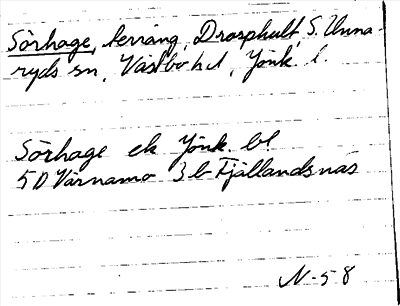 Sörhage, terräng, Drasphult, S. Unna-
ryds sn, Västbo hd, Jönk. l.
Sörhage ek Jönk. bl
5D Värnamo 3b Fjällandsnäs
N-58